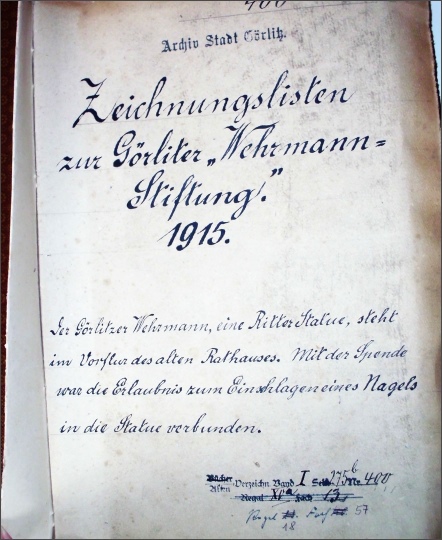 400
Archiv Stadt Görlitz.
Zeichnungslisten
zur Görlitzer „Wehrmann=
Stiftung."
1915.
Der Görlitzer Wehrmann, eine Ritter Statue, steht
im Vorflur des alten Rathauses. Mit der Spende
war die Erlaubnis zum Einschlagen eines Nagels
in die Statue verbunden.
Bücher
Akten Verzeichn Band I Seite 275b Nr. 400
Regal XIa Fach 13
Regal Fach 57
18